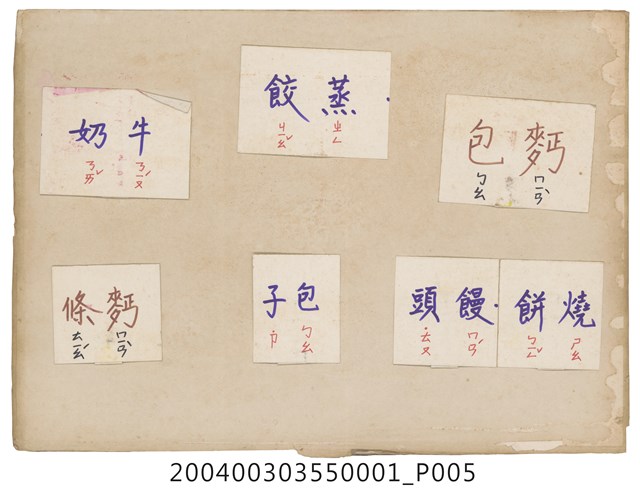 牛奶
ㄋㄧㄡˊ ㄋㄞˇ
蒸餃
ㄓㄥ ㄐㄧㄠˇ
麪包
ㄇㄧㄢˋ ㄅㄠ
麪條
ㄇㄧㄢˋ ㄊㄧㄠˊ
包子
ㄅㄠ ˙ㄗ
饅頭
ㄇㄢˊ ˙ㄊㄡ
燒餅
ㄕㄠ ㄅㄧㄥˇ
200400303550001_P005